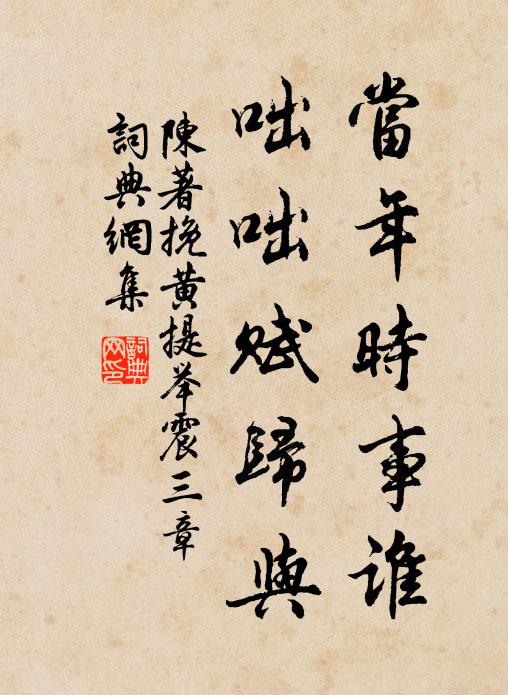 當年時事誰
咄咄賦歸與
陳著挽黄提舉震三章
詞典網集
詞典網印